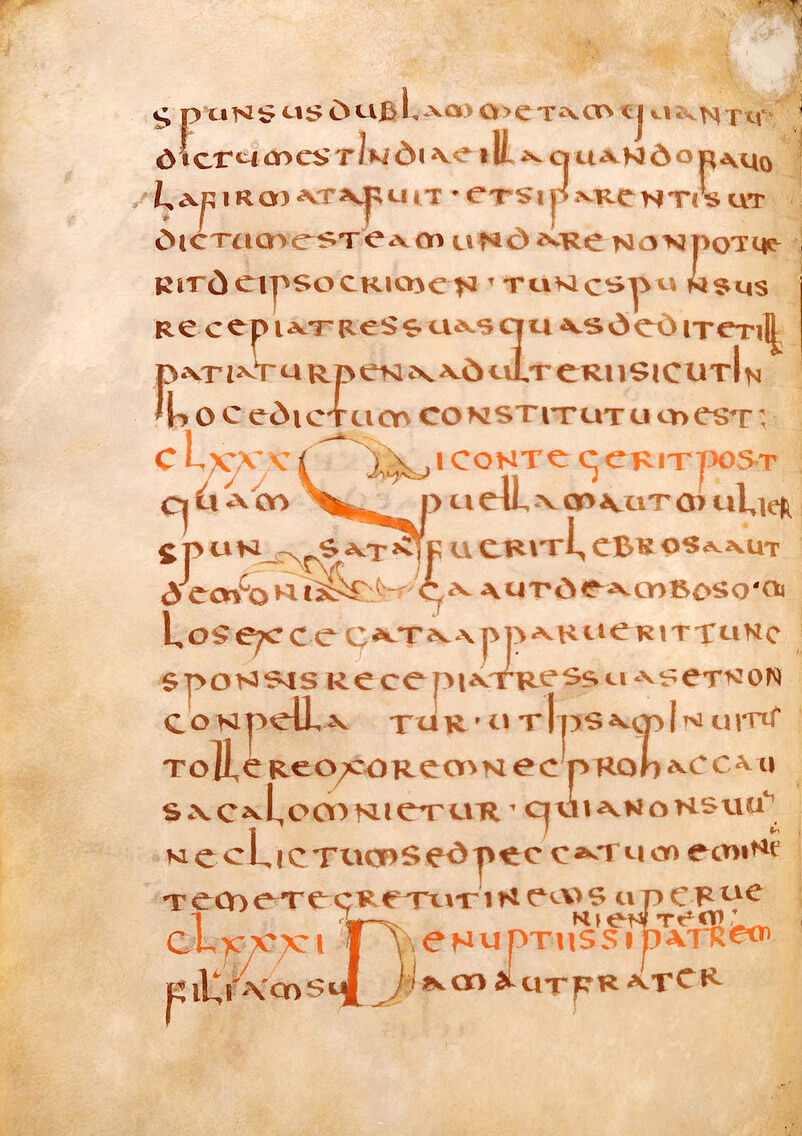 spunsus dublam metam quantu
dictum est in diae illa quando fauo
la firmata fuit · et si parentis ut
dictum est eam undare non potue
rit de ipso crimen · tunc spunsus
recepiat res suas quas dedit et illa
patiatur pena adulterii sicut in
hoc edictum constitutum est :
CLXXX Si contegerit post
quam puellam aut mulier
spunsata fuerit lebrosa aut
demoniaca aut de ambos oc
los excecata apparuerit tunc
sponsis recepiat res suas et non
conpellatur · ut ipsam inuitus
tollere oxorem nec pro hac cau
sa calomnietur · quia non suu
neclictum sed peccatum emine
tem et egretutinem superue
nientem :
CLXXXI De nuptiis si patrem
filiam suam aut frater